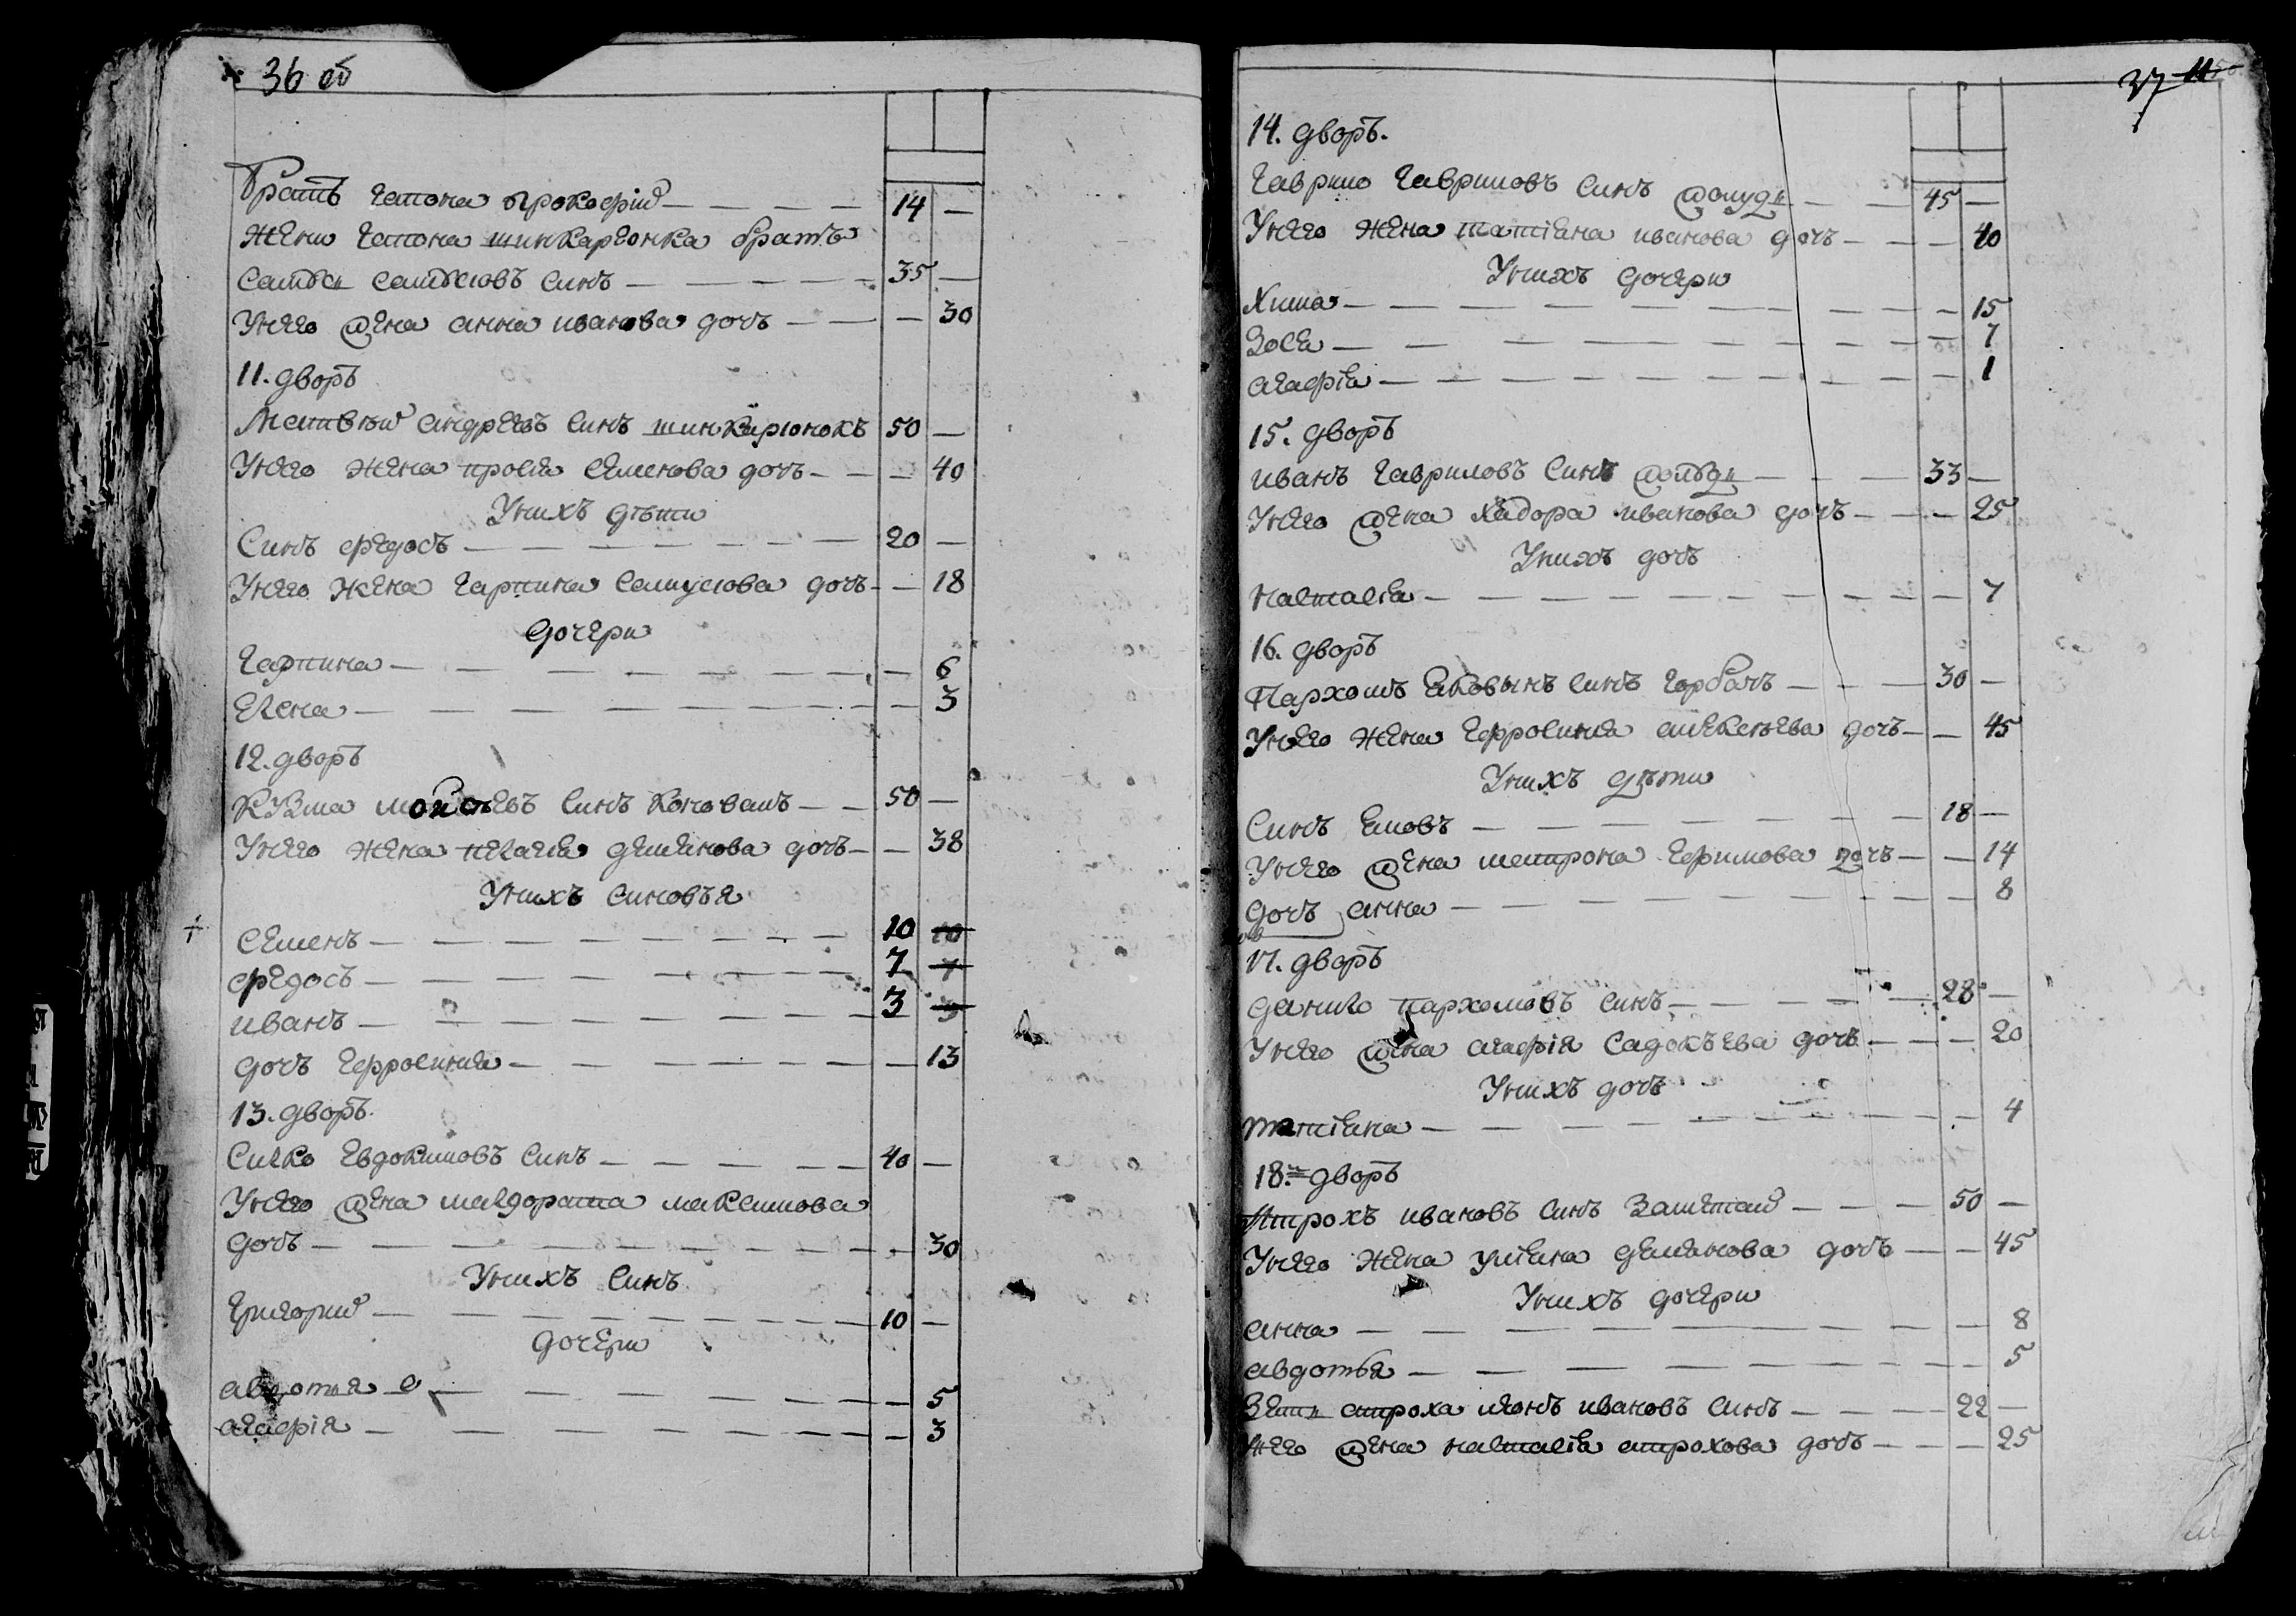 36 об
братъ гапона прокофій — 14 —
жены гапона шинкаренка братъ
самъсѣ самъсювъ синъ — 35 —
У него жена анна иванова дочъ — — 30
11. дворъ
Матвѣй андреевъ синъ шинкарюкъ 50 —
У него жена прося семенова дочъ — — 40
У нихъ дѣти
Синъ федосъ — 20 —
У него жена гарпина самусюва дочъ — — 18
дочери
гарпина — — 6
Елена — — 3
12. дворъ
Кузма мойсѣевъ синъ коновалъ — 50 —
У него жена пелагея демянова дочъ — — 38
У нихъ синовъя
семенъ — 10 10
федосъ — 7 7
иванъ — 3 3
дочъ гефросиния — — 13
13. дворъ
Силко евдокимовъ синъ — 40 —
У него жена максимова
дочъ — — 30
У нихъ синъ
григорий — 10 —
дочери
авдотия — — 5
агафія — — 3
37 11
14. дворъ.
гаврило гавриловъ синъ — 45 —
У него жена татіана иванова дочъ — — 40
У нихъ дочери
Хима — — 15
Зося — — 7
агафіа — — 1
15. дворъ
иванъ гавриловъ синъ — 33 —
У него жена хадора иванова дочъ — — 25
У нихъ дочъ
настасіа — — 7
16. дворъ
Пархомъ яковынъ синъ горбачъ — 30 —
У него жена гефросиния алексеева дочъ — — 45
У нихъ дѣти
Синъ — 18 —
У него жена метрона дочъ — — 14
дочъ анна — — 8
17. дворъ
данило пархомовъ синъ — 28 —
У него жена агафія садокъева дочъ — — 20
У нихъ дочъ
татіана — — 4
18. дворъ
Атрохъ ивановъ синъ заметай — 50 —
У него жена уліана демянова дочъ — — 45
У нихъ дочери
анна — — 8
авдотья — — 5
Зять атроха ивановъ синъ — 22 —
него жена настасіа атрохова дочъ — — 25